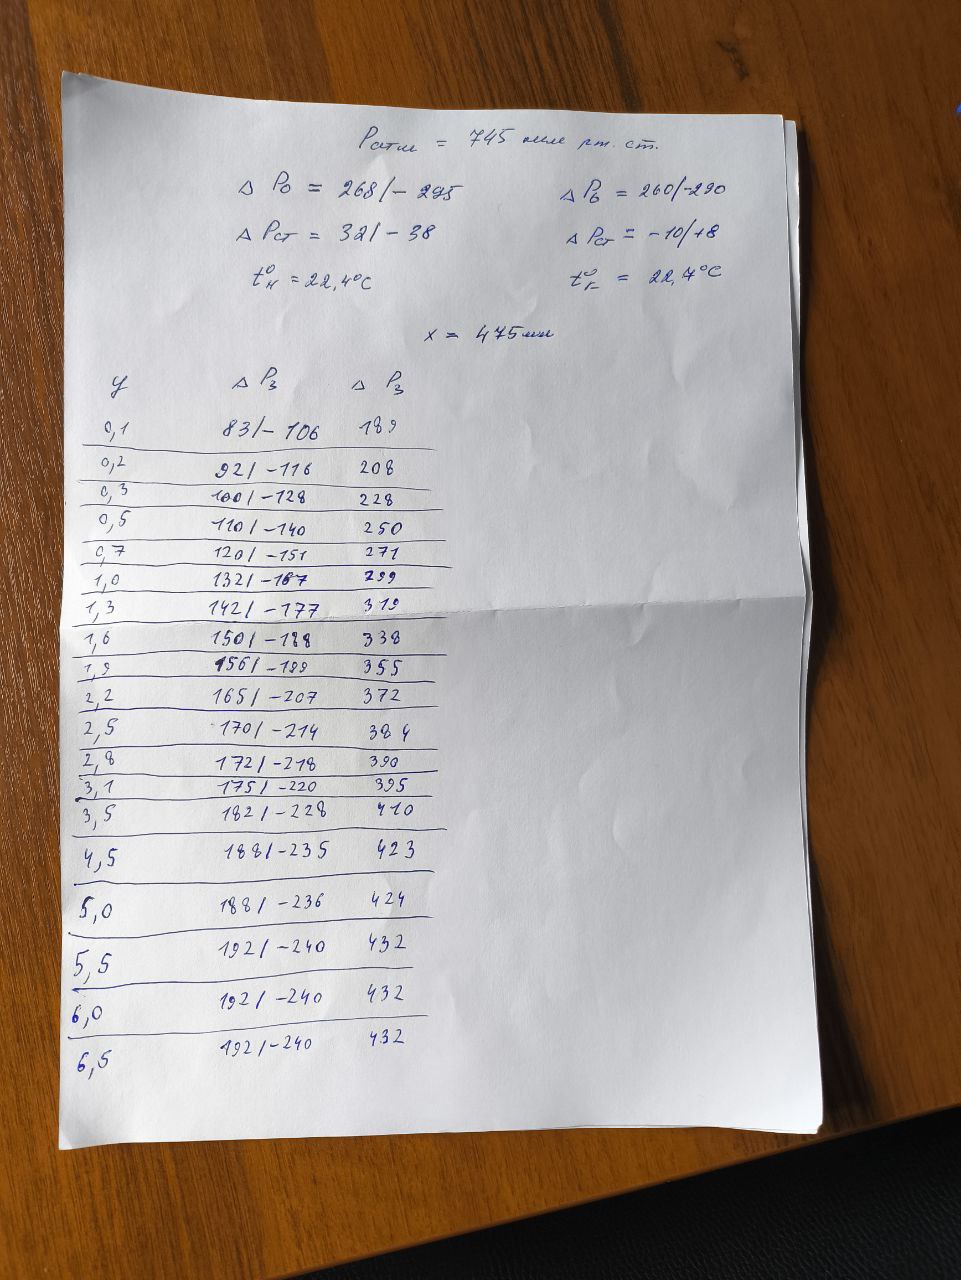 Pатм = 745 мм рт. ст.
Δ P0 = 268/-295 Δ P6 = 260/-290
Δ Pст = 32/-38 Δ Pст = -10/+8
t°н = 22,4°C t°г = 22,7°C
x = 475мм
y Δ P3 Δ P3
0,1 83/-106 189
0,2 92/-116 208
0,3 100/-128 228
0,5 110/-140 250
0,7 120/-151 271
1,0 132/-167 299
1,3 142/-177 319
1,6 150/-188 338
1,9 156/-199 355
2,2 165/-207 372
2,5 170/-214 384
2,8 172/-218 390
3,1 175/-220 395
3,5 182/-228 410
4,5 188/-235 423
5,0 188/-236 424
5,5 192/-240 432
6,0 192/-240 432
6,5 192/-240 432